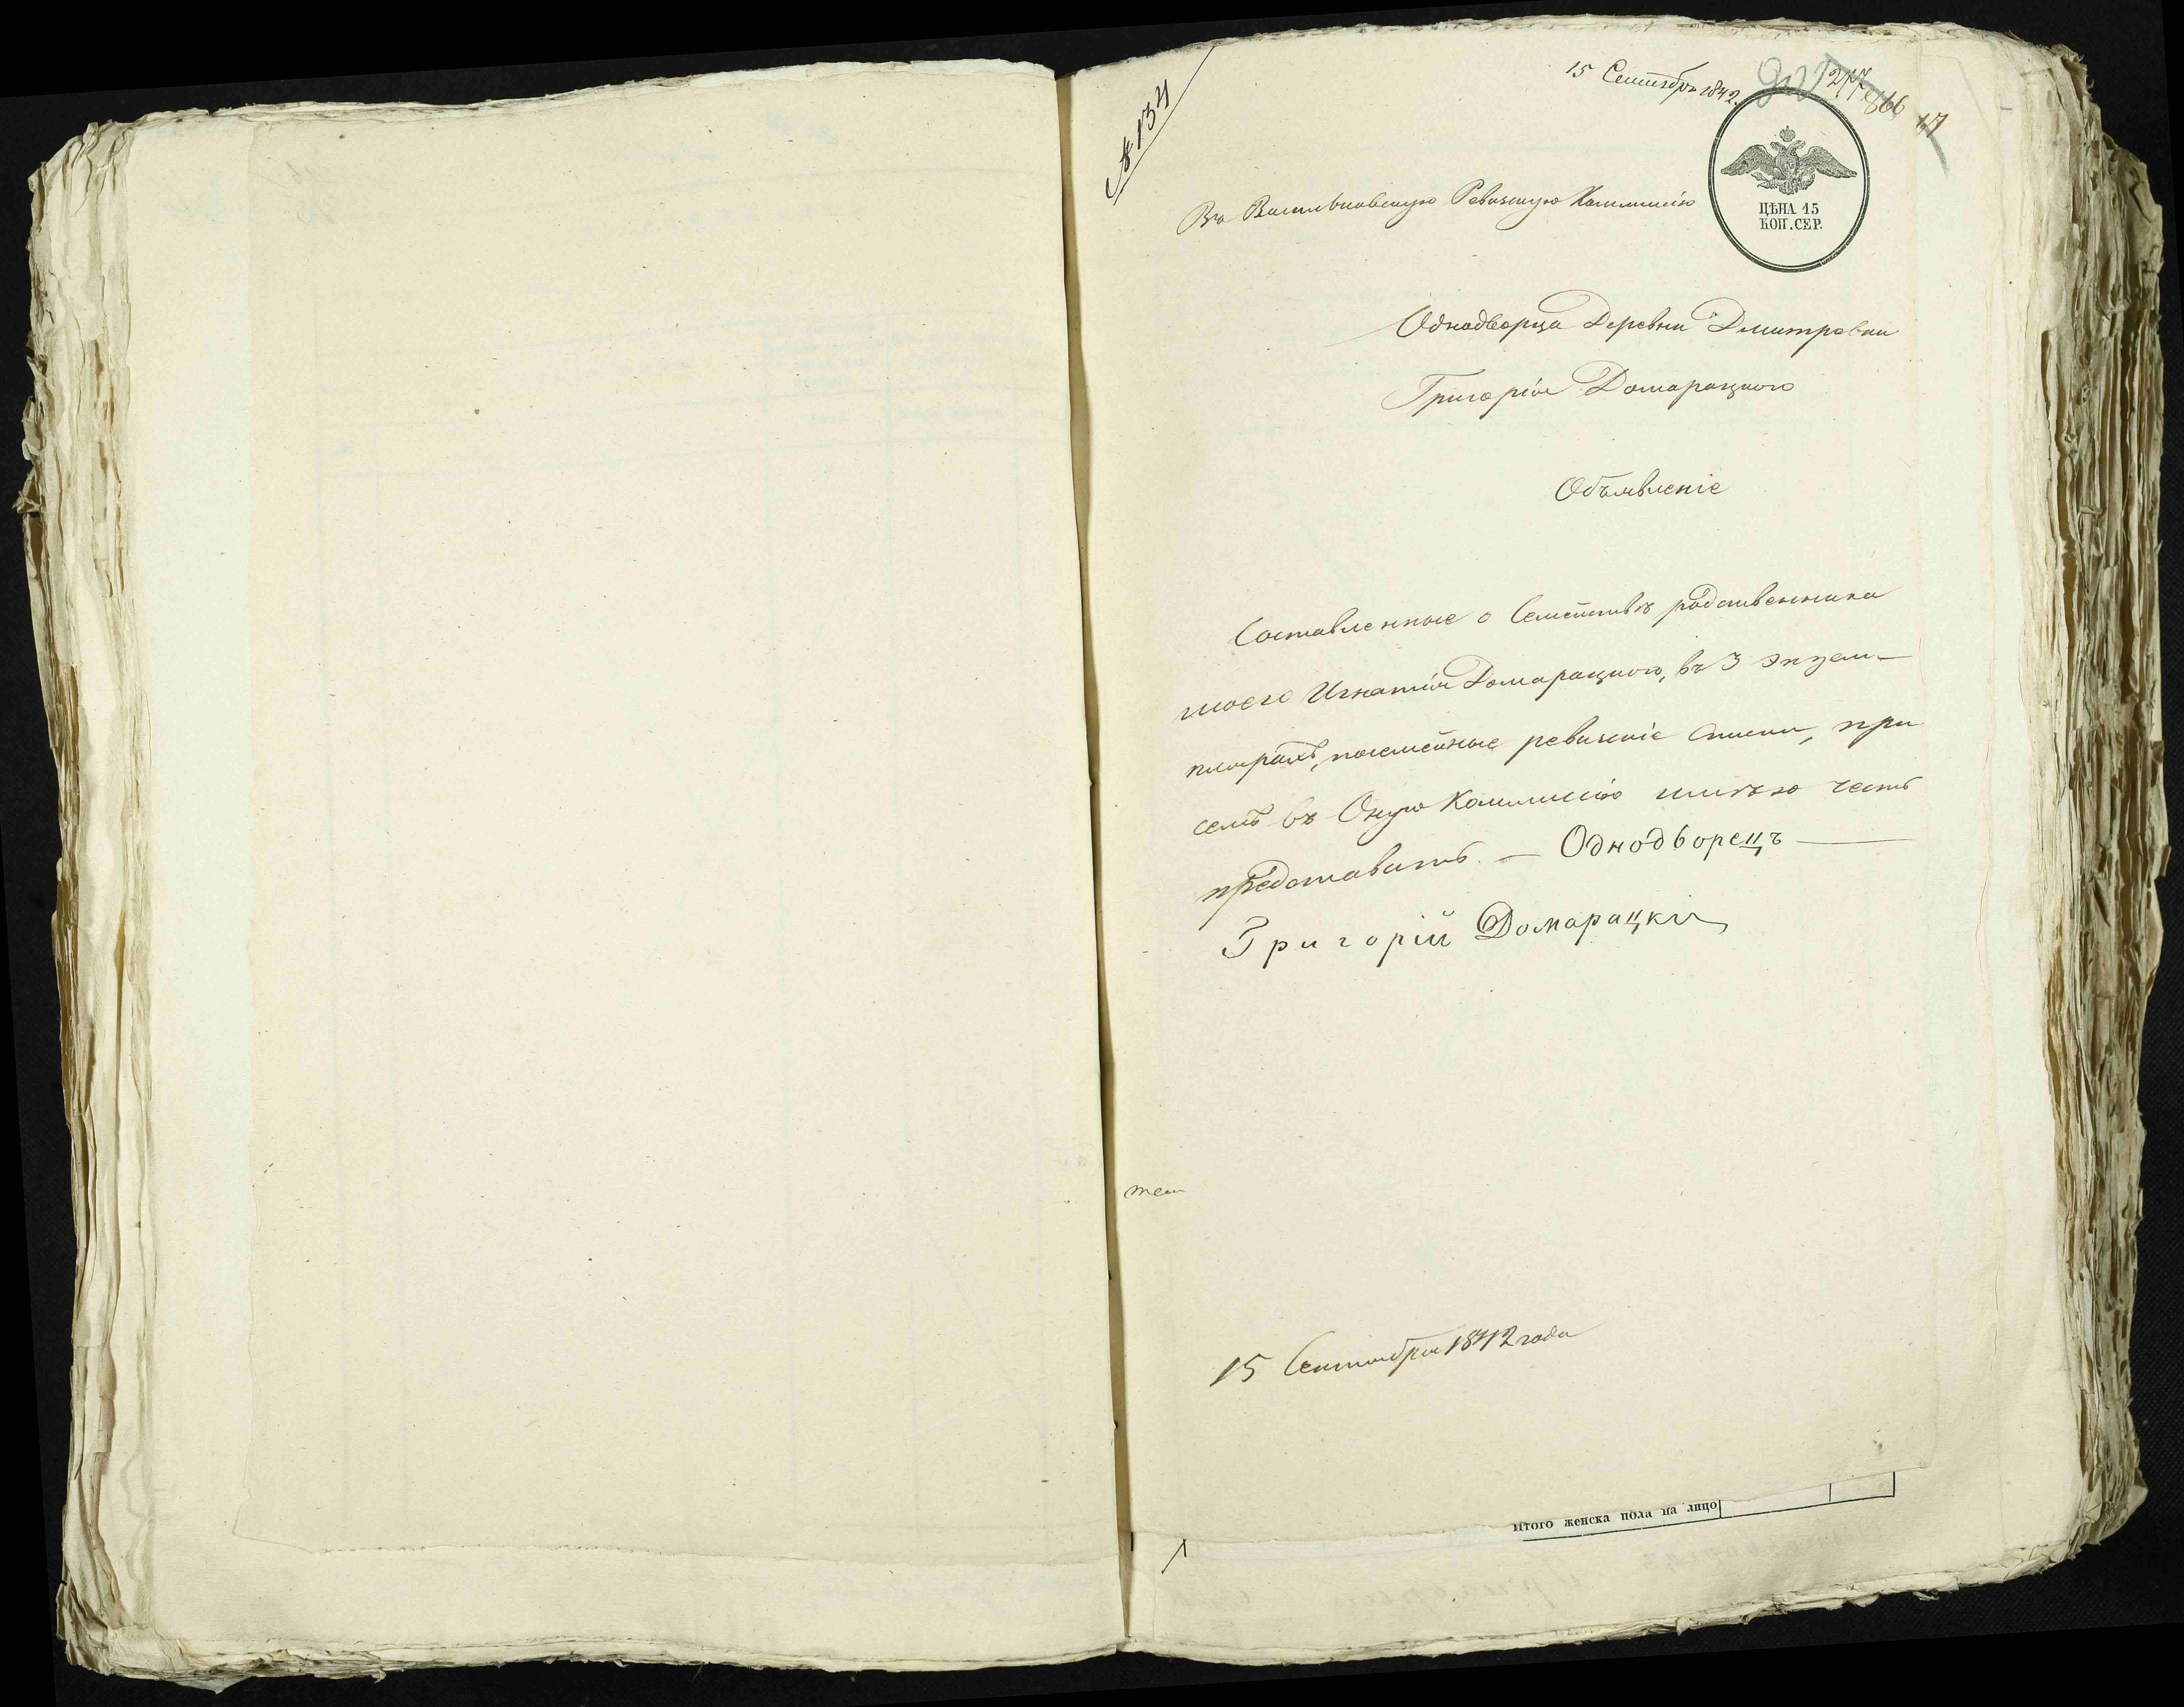 № 134
15 Сентября 1842.
277
866
17
Въ Васильковскую Ревизскую Коммисію
ЦѢНА 15
КОП. СЕР.
Однодворца Деревни Дмитровки
Григорія Домарацкого
Объявленіе
Составленные о Семействѣ родственника
моего Игнатія Домарацкого, въ 3 экзем-
плярахъ, посемейные ревизскіе списки, при
семъ въ Оную Коммисію имѣю честь
представить. — Однодворецъ —
Григорій Домарацкій
15 Сентября 1842 года
Итого женска пола на лицо
1